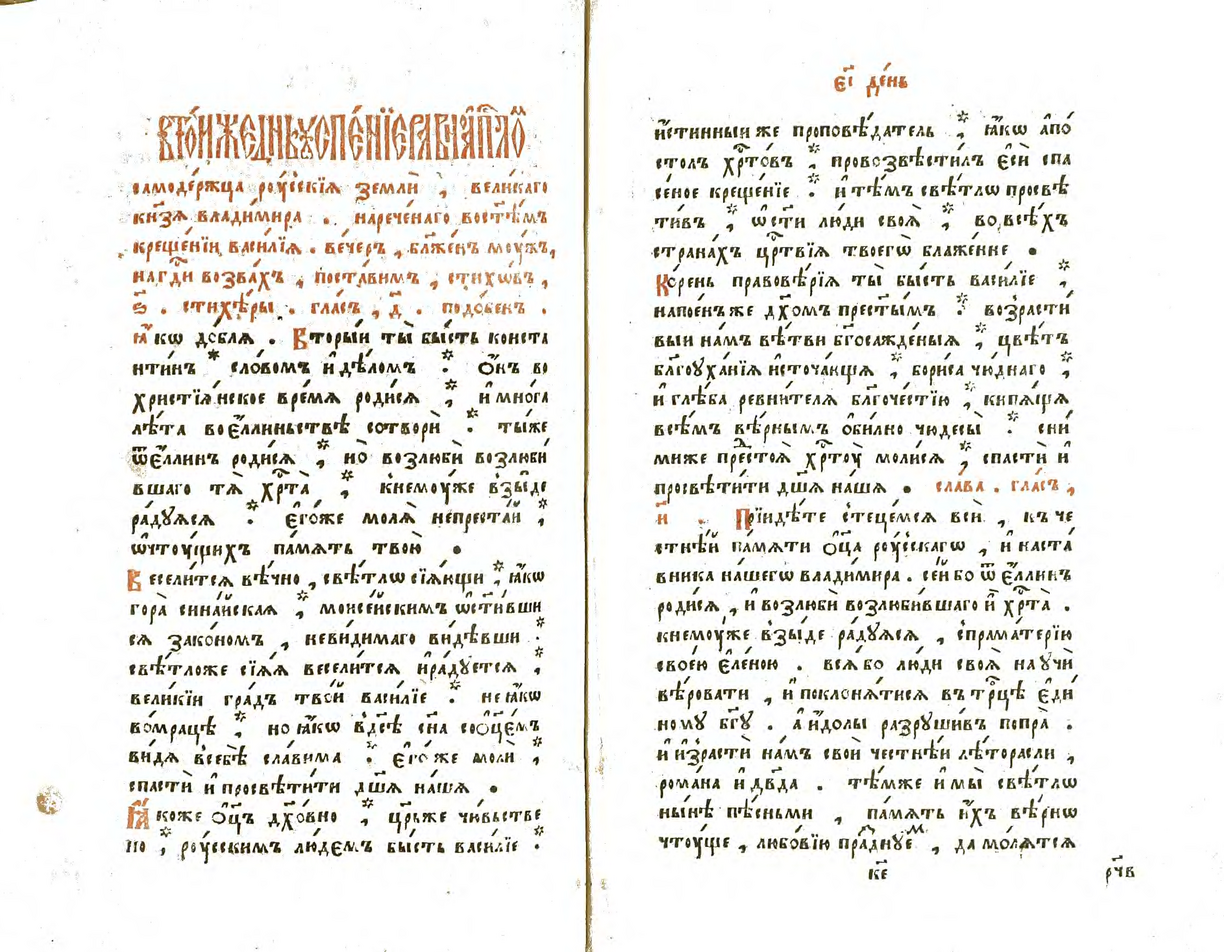 втои́жедн҃ьꙋспе́нїеравноап҃ло
самоде́ржца роу́сскїѧ землѝ , вели́каго
кн҃зѧ влади́мира . наре́ченаго востѣ́мъ
креще́нїи васи́лїѧ . ве́черъ , бл҃же́нъ моу́жъ,
на гд҃и возва́хъ , поста́вимъ , стихо́въ ,
ѕ҃ . стихѣ́ры . гла́съ , д҃ . подо́бенъ .
ꙗ҆́кѡ до́блѧ . Вторы́и ты̀ бы́сть конста
нти́нъ * сло́вомъ и҆ дѣ́ломъ . О҆́нъ во
христїѧ́нское вре́мѧ роди́сѧ , и҆ мно́га
лѣ́та воє҆́ллиньствѣ сотворѝ . ты́же
ѿє҆́ллинъ роди́сѧ , но̀ возлюбѝ возлюби́
вшаго тѧ̀ хр҇та̀ , кнемоу́же взы́де
ра́дꙋѧсѧ . є҆го́же молѧ̀ непреста́й ,
ѡ҆чтоу́щихъ па́мѧть твою̀ .
Весели́тсѧ вѣ́чно , свѣ́тлѡ сїѧ́ющи , ꙗ҆́кѡ
гора̀ сина́йская , моисе́йскимъ ѡ҆ст҃и́вши
сѧ зако́номъ , неви́димаго ви́дѣвши .
свѣ́тложе сїѧ́ѧ весели́тсѧ и҆ра́дꙋетсѧ ,
вели́кїи гра́дъ тво́й васи́лїе . не ꙗ҆́кѡ
во́мрацѣ , но ꙗ҆́кѡ вдс҃ѣ сн҃а соо҆ц҃е́мъ
ви́дѧ всебѣ̀ сла́вима . є҆го́же молѝ ,
спастѝ и҆ просвѣти́ти дш҃а на́шѧ .
Ꙗ҆́коже о҆ц҃ъ дх҃о́вно , цр҃ьже чи́вьстве
но , роу́сскимъ лю́демъ бы́сть васи́лїе .
є҃ı де́нь
и҆́стинныи же проповѣ́датель , ꙗ҆́кѡ а҆по́
столъ хр҇то́въ , провозвѣсти́лъ є҆сѝ спа
се́ное креще́нїе . и҆ тѣ́мъ свѣ́тлѡ просвѣ
ти́въ , ѡ҆ст҃и лю́ди своѧ̀ , во́ всѣ́хъ
страна́хъ цр҇твїѧ твоегѡ̀ блаже́нне .
Ко́рень правовѣ́рїѧ ты̀ бы́сть васи́лїе ,
напое́нъже дх҃омъ прест҃ымъ . возрасти́
выи на́мъ вѣ́тви бг҃осажде́ныѧ , цвѣ́тъ
бл҃гоуха́нїѧ и҆сточа́ющѧ , бори́са чю́днаго ,
и҆ глѣ́ба ревни́телѧ бл҃гоче́стїю , кипѧ́щѧ
всѣ́мъ вѣ́рнымъ о҆би́лно чюдесы̀ . сни́
миже престоѧ̀ хр҇тоу̀ моли́сѧ , спастѝ и҆
просвѣти́ти дш҃а на́шѧ . сла́ва . гла́съ ,
и҃ . Прїидѣ́те стеце́мсѧ всѝ , къ че
стнѣ́й па́мѧти о҆ц҃а роу́сскагѡ , и҆ наста́
вника на́шегѡ влади́мира . се́й бо ѿ є҆́ллинъ
роди́сѧ , и҆ возлюбѝ возлюби́вшаго и҆̀ хр҇та̀ .
кнемоу́же взы́де ра́дꙋѧсѧ , спрама́терїю
свое́ю є҆ле́ною . всѧ̀ бо лю́ди своѧ̀ наꙋчѝ
вѣ́ровати , и҆ поклонѧ́тисѧ въ тр҇цѣ є҆ди́
номꙋ бг҃ꙋ . а҆ и҆́долы разруши́въ попра̀ .
и҆ и҆зрастѝ на́мъ своѝ че́стнѣи лѣ́торасли ,
рома́на и҆ дв҃да . тѣ́мже и҆ мы̀ свѣ́тлѡ
ны́нѣ пѣ́сньми , па́мѧть и҆́хъ вѣ́рнѡ
чтоу́ще , любо́вїю пра́знꙋем , да мо́лѧтсѧ
ке҃
рч҃в